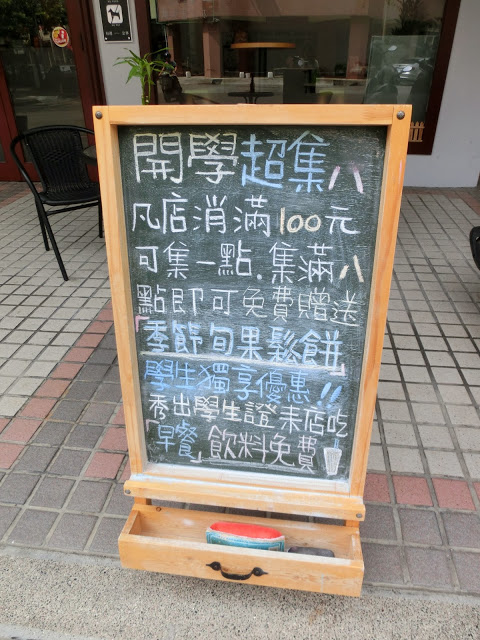 開學超集八
凡店消滿100元
可集一點.集滿八
點即可免費贈送
「季節旬果鬆餅」
學生獨享優惠!!
秀出學生證來店吃
「早餐」飲料免費